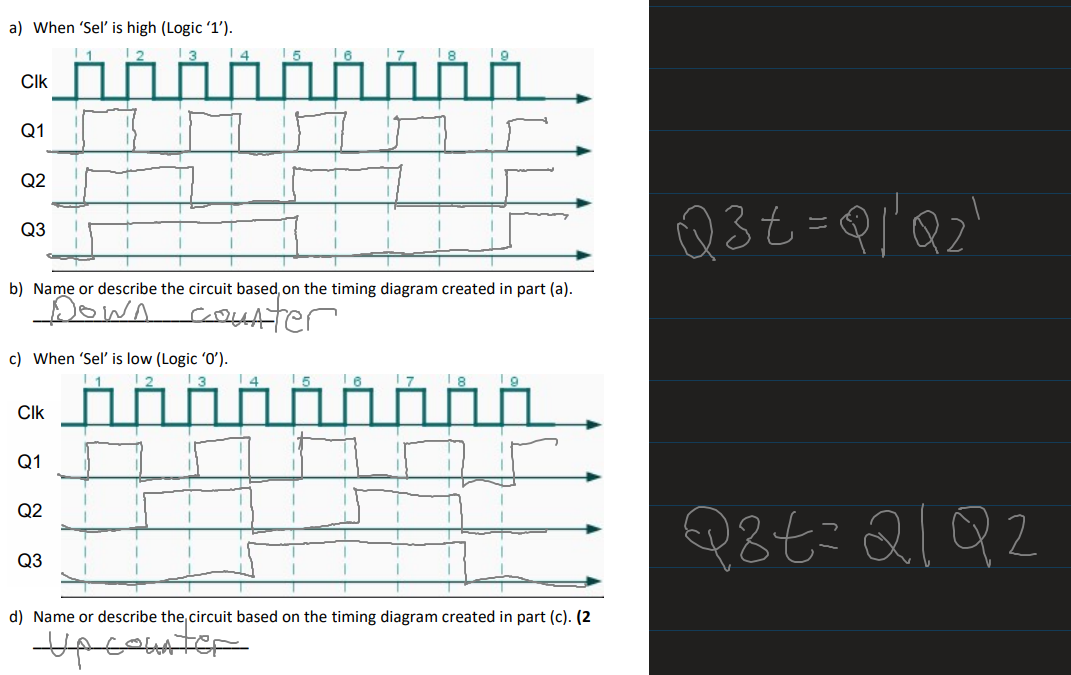 a) When ‘Sel’ is high (Logic ‘1’).
1 2 3 4 5 6 7 8 9
Clk
Q1
Q2
Q3
b) Name or describe the circuit based on the timing diagram created in part (a).
Down counter
c) When ‘Sel’ is low (Logic ‘0’).
1 2 3 4 5 6 7 8 9
Clk
Q1
Q2
Q3
d) Name or describe the circuit based on the timing diagram created in part (c). (2
Up counter
Q3t = Q1' Q2'
Q3t = Q1 Q2